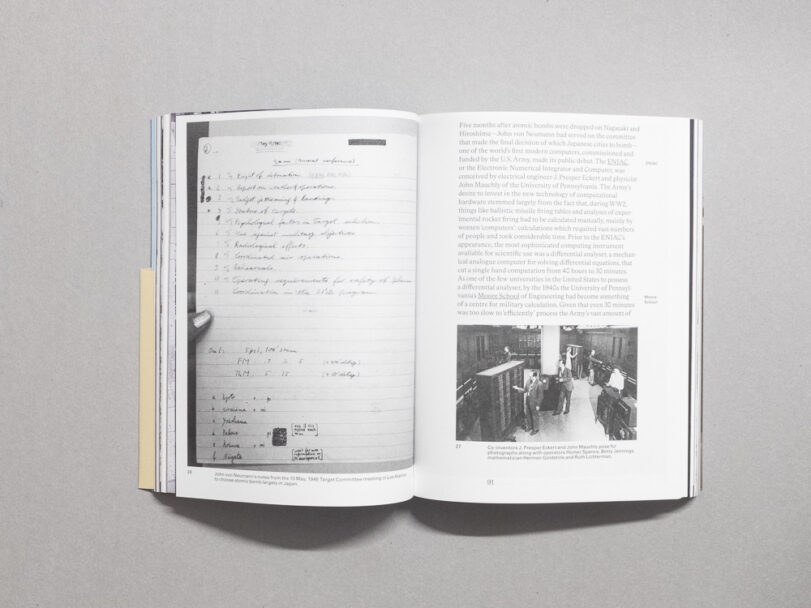 May 10, 1945
1) Height of detonation
2) Report on weather & operations.
3) Gadget jettisoning & landing.
4) Status of targets.
5) Psychological factors in Target selection
6) Use against military objectives.
7) Radiological effects.
8) Coordinated air operations.
9) Rehearsals.
10) Operating requirements for safety of plane
11 Coordination in the program.
26
John von Neumann's notes from the 10 May, 1945 Target Committee meeting in Los Alamos
to choose atomic bomb targets in Japan.
Five months after atomic bombs were dropped on Nagasaki and
Hiroshima—John von Neumann had served on the committee
that made the final decision of which Japanese cities to bomb—
one of the world's first modern computers, commissioned and
funded by the U.S. Army, made its public debut. The ENIAC
or the Electronic Numerical Integrator and Computer, was
conceived by electrical engineer J. Presper Eckert and physicist
John Mauchly of the University of Pennsylvania. The Army's
desire to invest in the new technology of computational
hardware stemmed largely from the fact that, during WW2,
things like ballistic missile firing tables and analysis of exper-
imental rocket firing had to be calculated manually, mainly by
women 'computers': calculations which required vast numbers
of people and took considerable time. Prior to the ENIAC's
appearance, the most sophisticated computing instrument
available for scientific use was a differential analyser, a mechan-
ical analogue computer for solving differential equations, that
cut a single hand computation from 40 hours to 30 minutes.
As one of the few universities in the United States to possess
a differential analyser, by the 1940s the University of Pennsyl-
vania's Moore School of Engineering had become something
of a centre for military calculation. Given that even 30 minutes
was too slow to 'efficiently' process the Army's vast amount of
ENIAC
Moore
School
27
Co-inventors J. Presper Eckert and John Mauchly pose for
photographs along with operators Homer Spence, Betty Jennings,
mathematician Herman Goldstine and Ruth Lichterman.